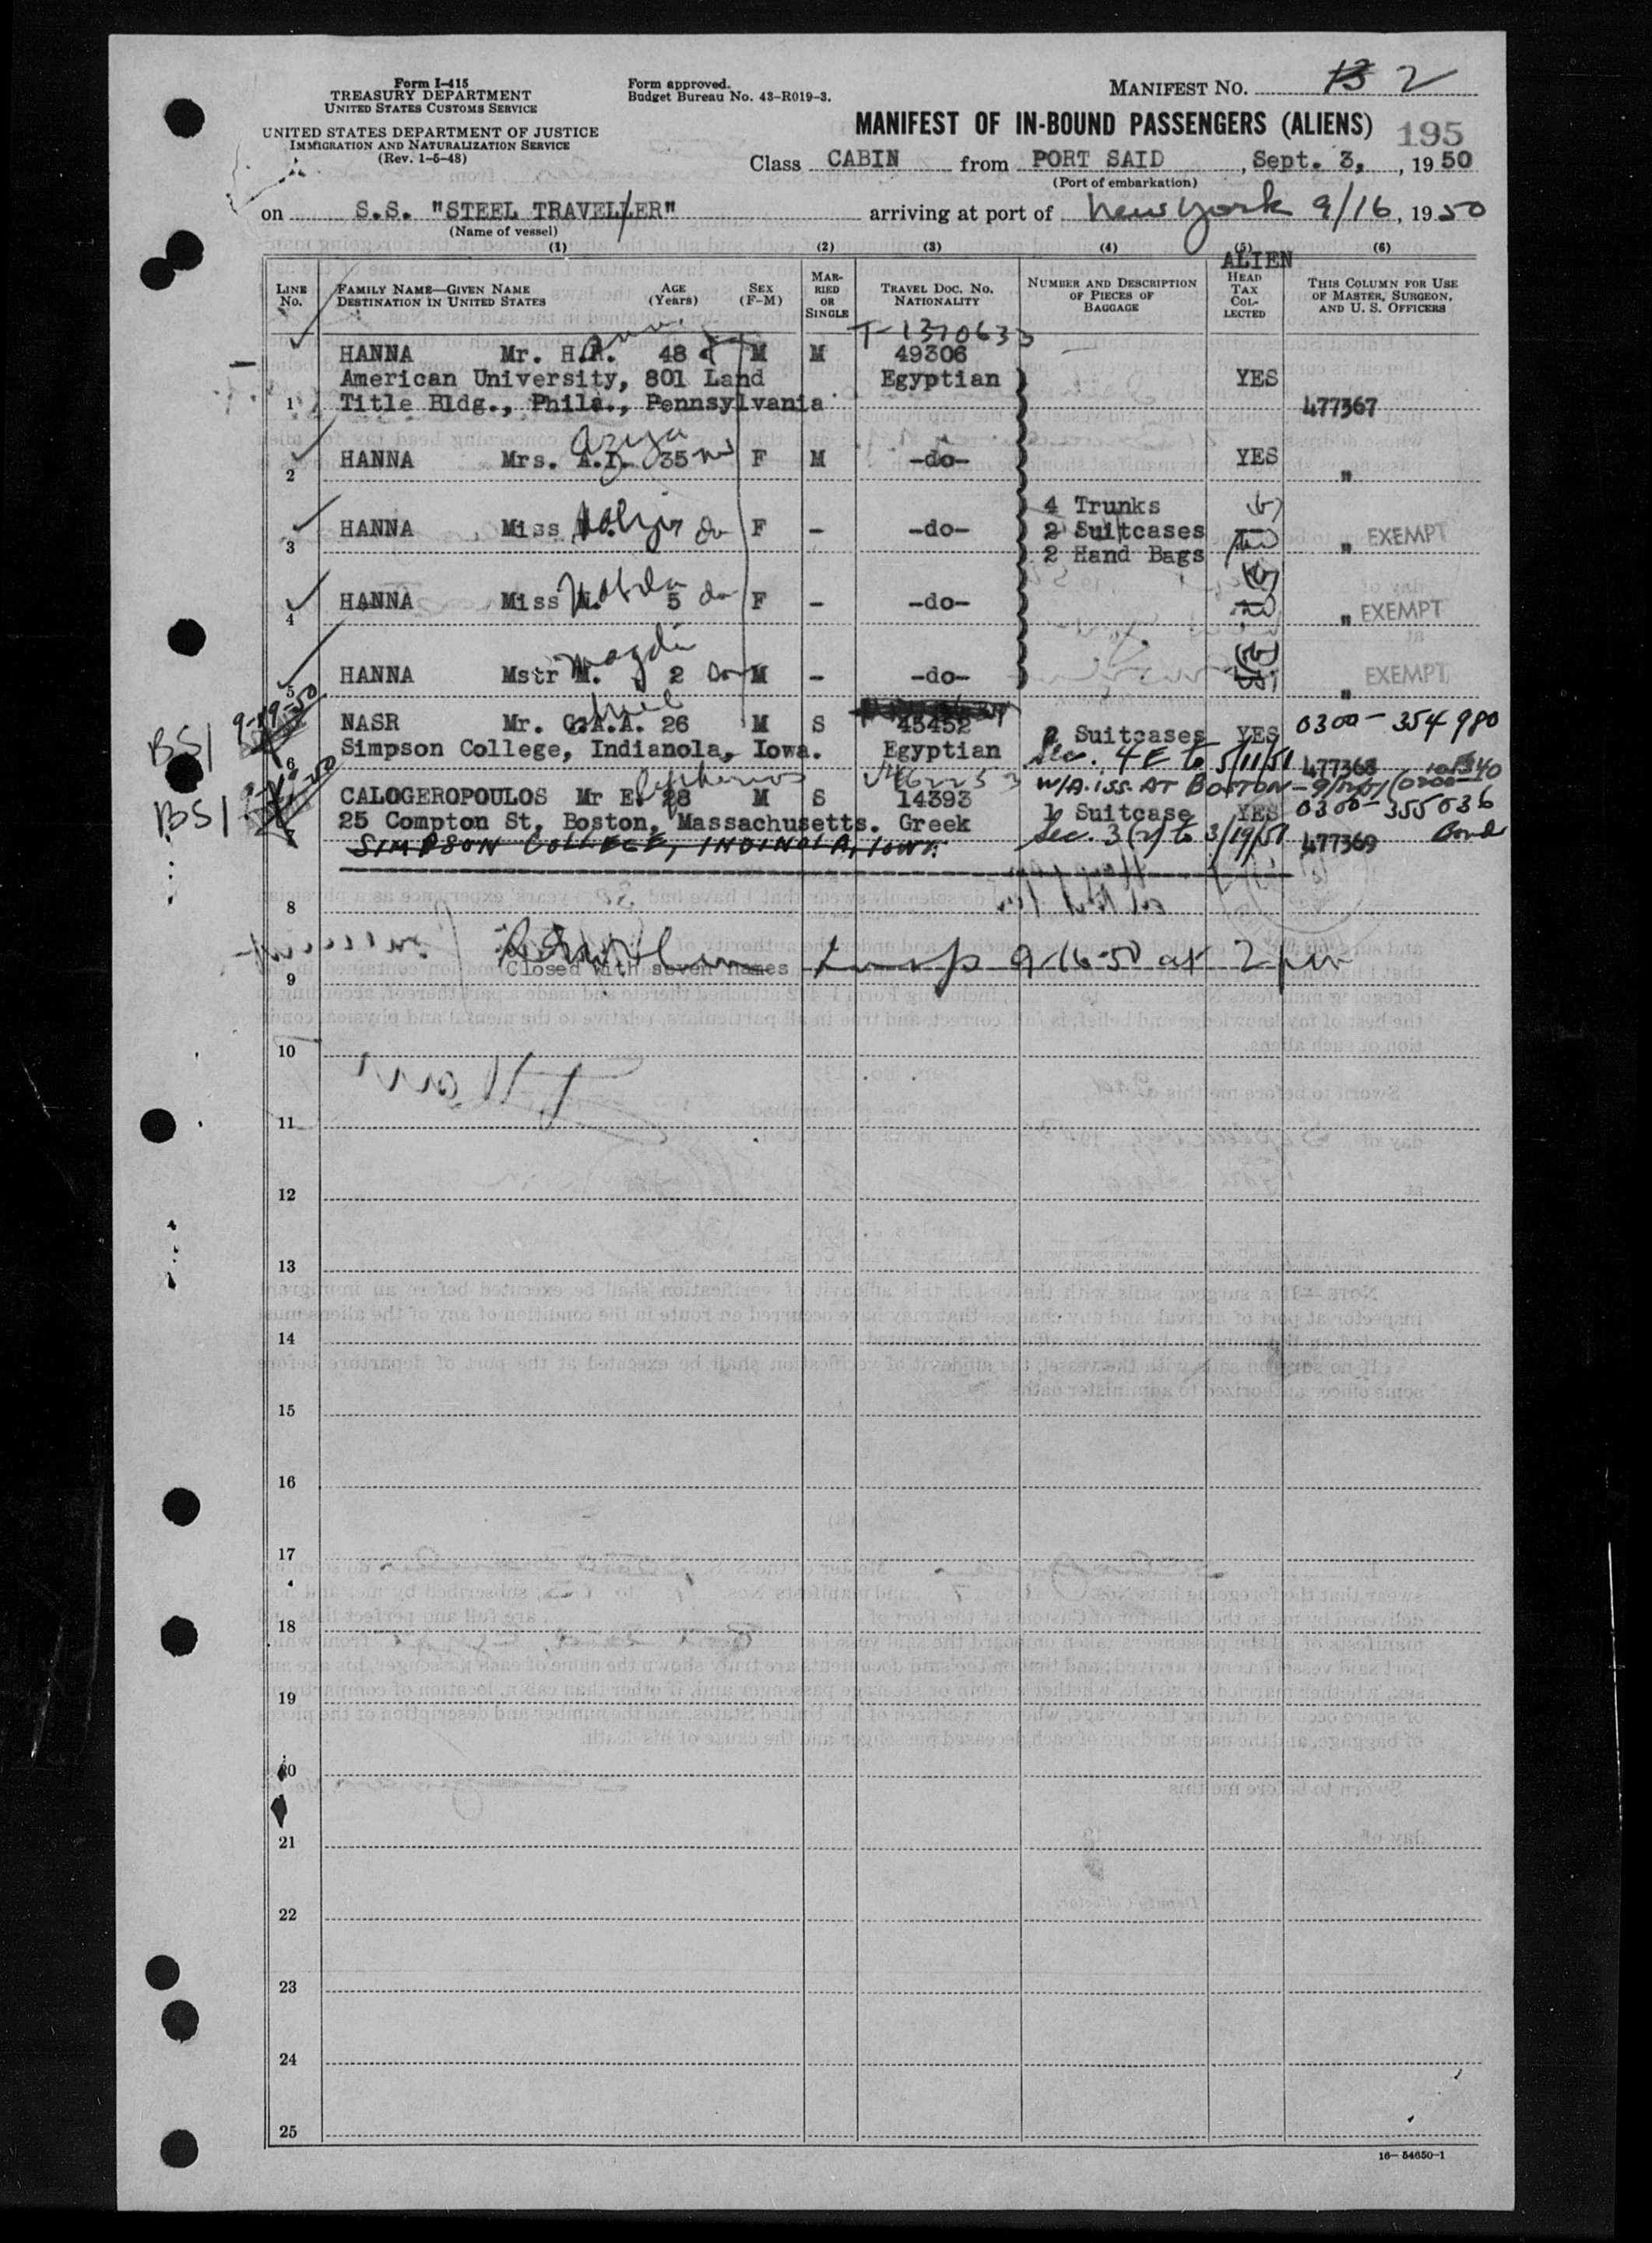 Form I-415
TREASURY DEPARTMENT
UNITED STATES CUSTOMS SERVICE
UNITED STATES DEPARTMENT OF JUSTICE
IMMIGRATION AND NATURALIZATION SERVICE
(Rev. 1-5-48)
Form approved.
Budget Bureau No. 43-R019-3.
MANIFEST NO. 13 2
MANIFEST OF IN-BOUND PASSENGERS (ALIENS) 195
Class CABIN from PORT SAID, Sept. 3, 1950
(Port of embarkation)
on S.S. "STEEL TRAVELLER" arriving at port of New York 9/16, 1950
(Name of vessel)
(1) (2) (3) (4) (5) (6)
LINE No. FAMILY NAME—GIVEN NAME DESTINATION IN UNITED STATES AGE (Years) SEX (F-M) MARRIED OR SINGLE TRAVEL DOC. NO. NATIONALITY NUMBER AND DESCRIPTION OF PIECES OF BAGGAGE ALIEN HEAD TAX COLLECTED THIS COLUMN FOR USE OF MASTER, SURGEON, AND U. S. OFFICERS
T-1370633
HANNA Mr. H.A. 48 M M 49306
American University, 801 Land Egyptian YES
1 Title Bldg., Phila., Pennsylvania 477367
Aziza
2 HANNA Mrs. A.I. 35 F M -do- YES "
4 Trunks
3 HANNA Miss F - -do- 2 Suitcases " EXEMPT
2 Hand Bags
4 HANNA Miss N. 5 F - -do- " EXEMPT
Magdi
5 HANNA Mstr M. 2 M - -do- " EXEMPT
BSI 9-19-50 NASR Mr. G.A.A. 26 M S 45452 2 Suitcases YES 0300-354980
6 Simpson College, Indianola, Iowa. Egyptian Sec. 4E to 5/11/51 477368
Eleftherios V462253 W/A. ISS. AT BOSTON
BSI CALOGEROPOULOS Mr E. 28 M S 14393 1 Suitcase YES 0300-355036
7 25 Compton St, Boston, Massachusetts. Greek Sec. 3(2) to 3/19/51 477369 Bond
SIMPSON COLLEGE, INDINOLA, IOWA.
8
Closed with seven names 9-16-50 at 2 pm
9
10
11
12
13
14
15
16
17
18
19
20
21
22
23
24
25
16—54650-1